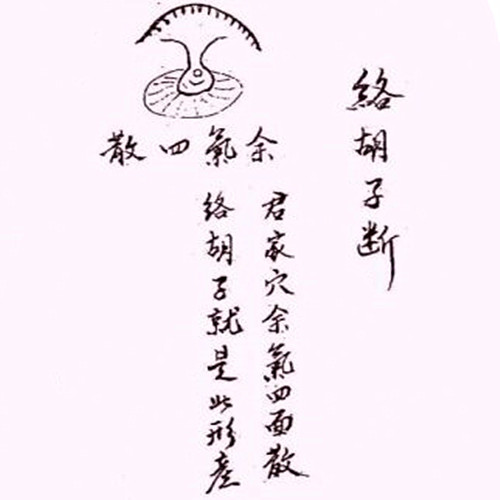 络胡子断
余氣四散
君家穴余氣四面散
络胡子就是此形産